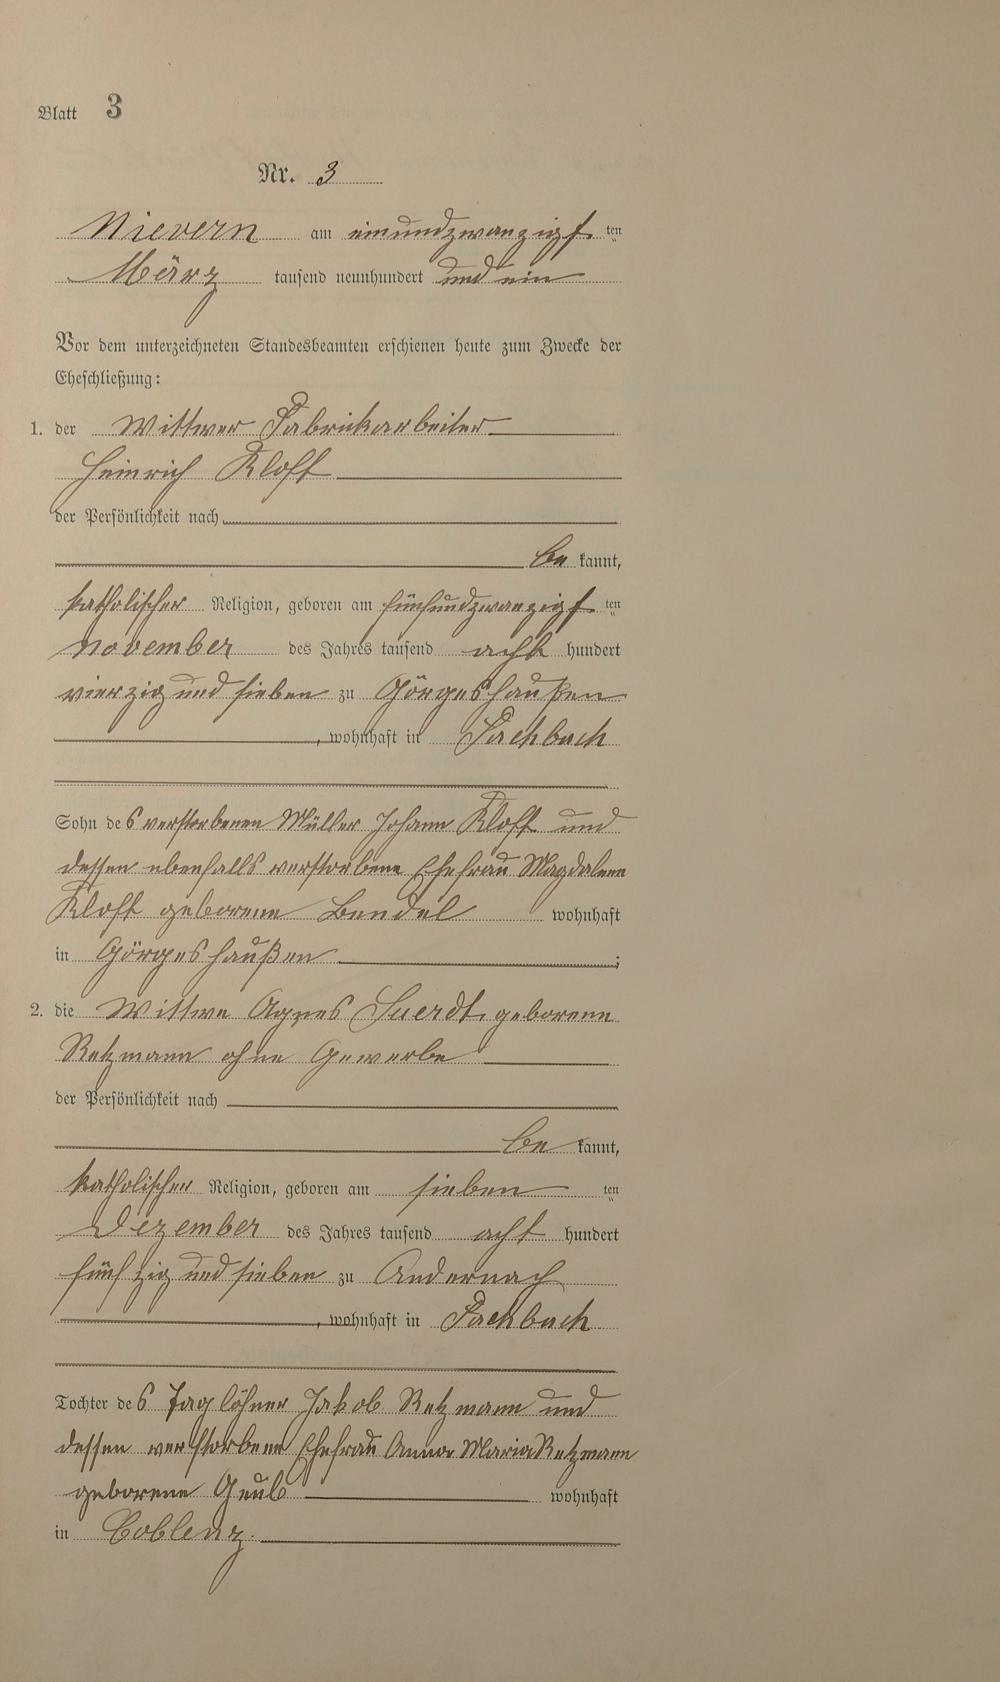 Blatt 3
Nr. 3
Nievern am einundzwanzigsten
März tausend neunhundert und ein
Vor dem unterzeichneten Standesbeamten erschienen heute zum Zwecke der
Eheschließung:
1. der Wittwer Fabrikarbeiter
Heinrich Kloft
der Persönlichkeit nach
be kannt,
katholischer Religion, geboren am fünfundzwanzigsten
November des Jahres tausend acht hundert
vierzig und sieben zu Görgeshaußen
, wohnhaft in Fachbach
Sohn des verstorbenen Müller Johann Kloft und
dessen ebenfalls verstorbene Ehefrau Magdalene
Kloft geborene Bendel wohnhaft
in Görgeshaußen ;
2. die Wittwe Agnes geborene
Retzmann ohne Gewerbe
der Persönlichkeit nach
be kannt,
katholischer Religion, geboren am sieben ten
Dezember des Jahres tausend acht hundert
fünfzig und sieben zu Andernach
, wohnhaft in Fachbach
Tochter des Taglöhner Jakob Retzmann und
dessen verstorbene Ehefrau Anna Maria Retzmann
geborene wohnhaft
in Coblenz.